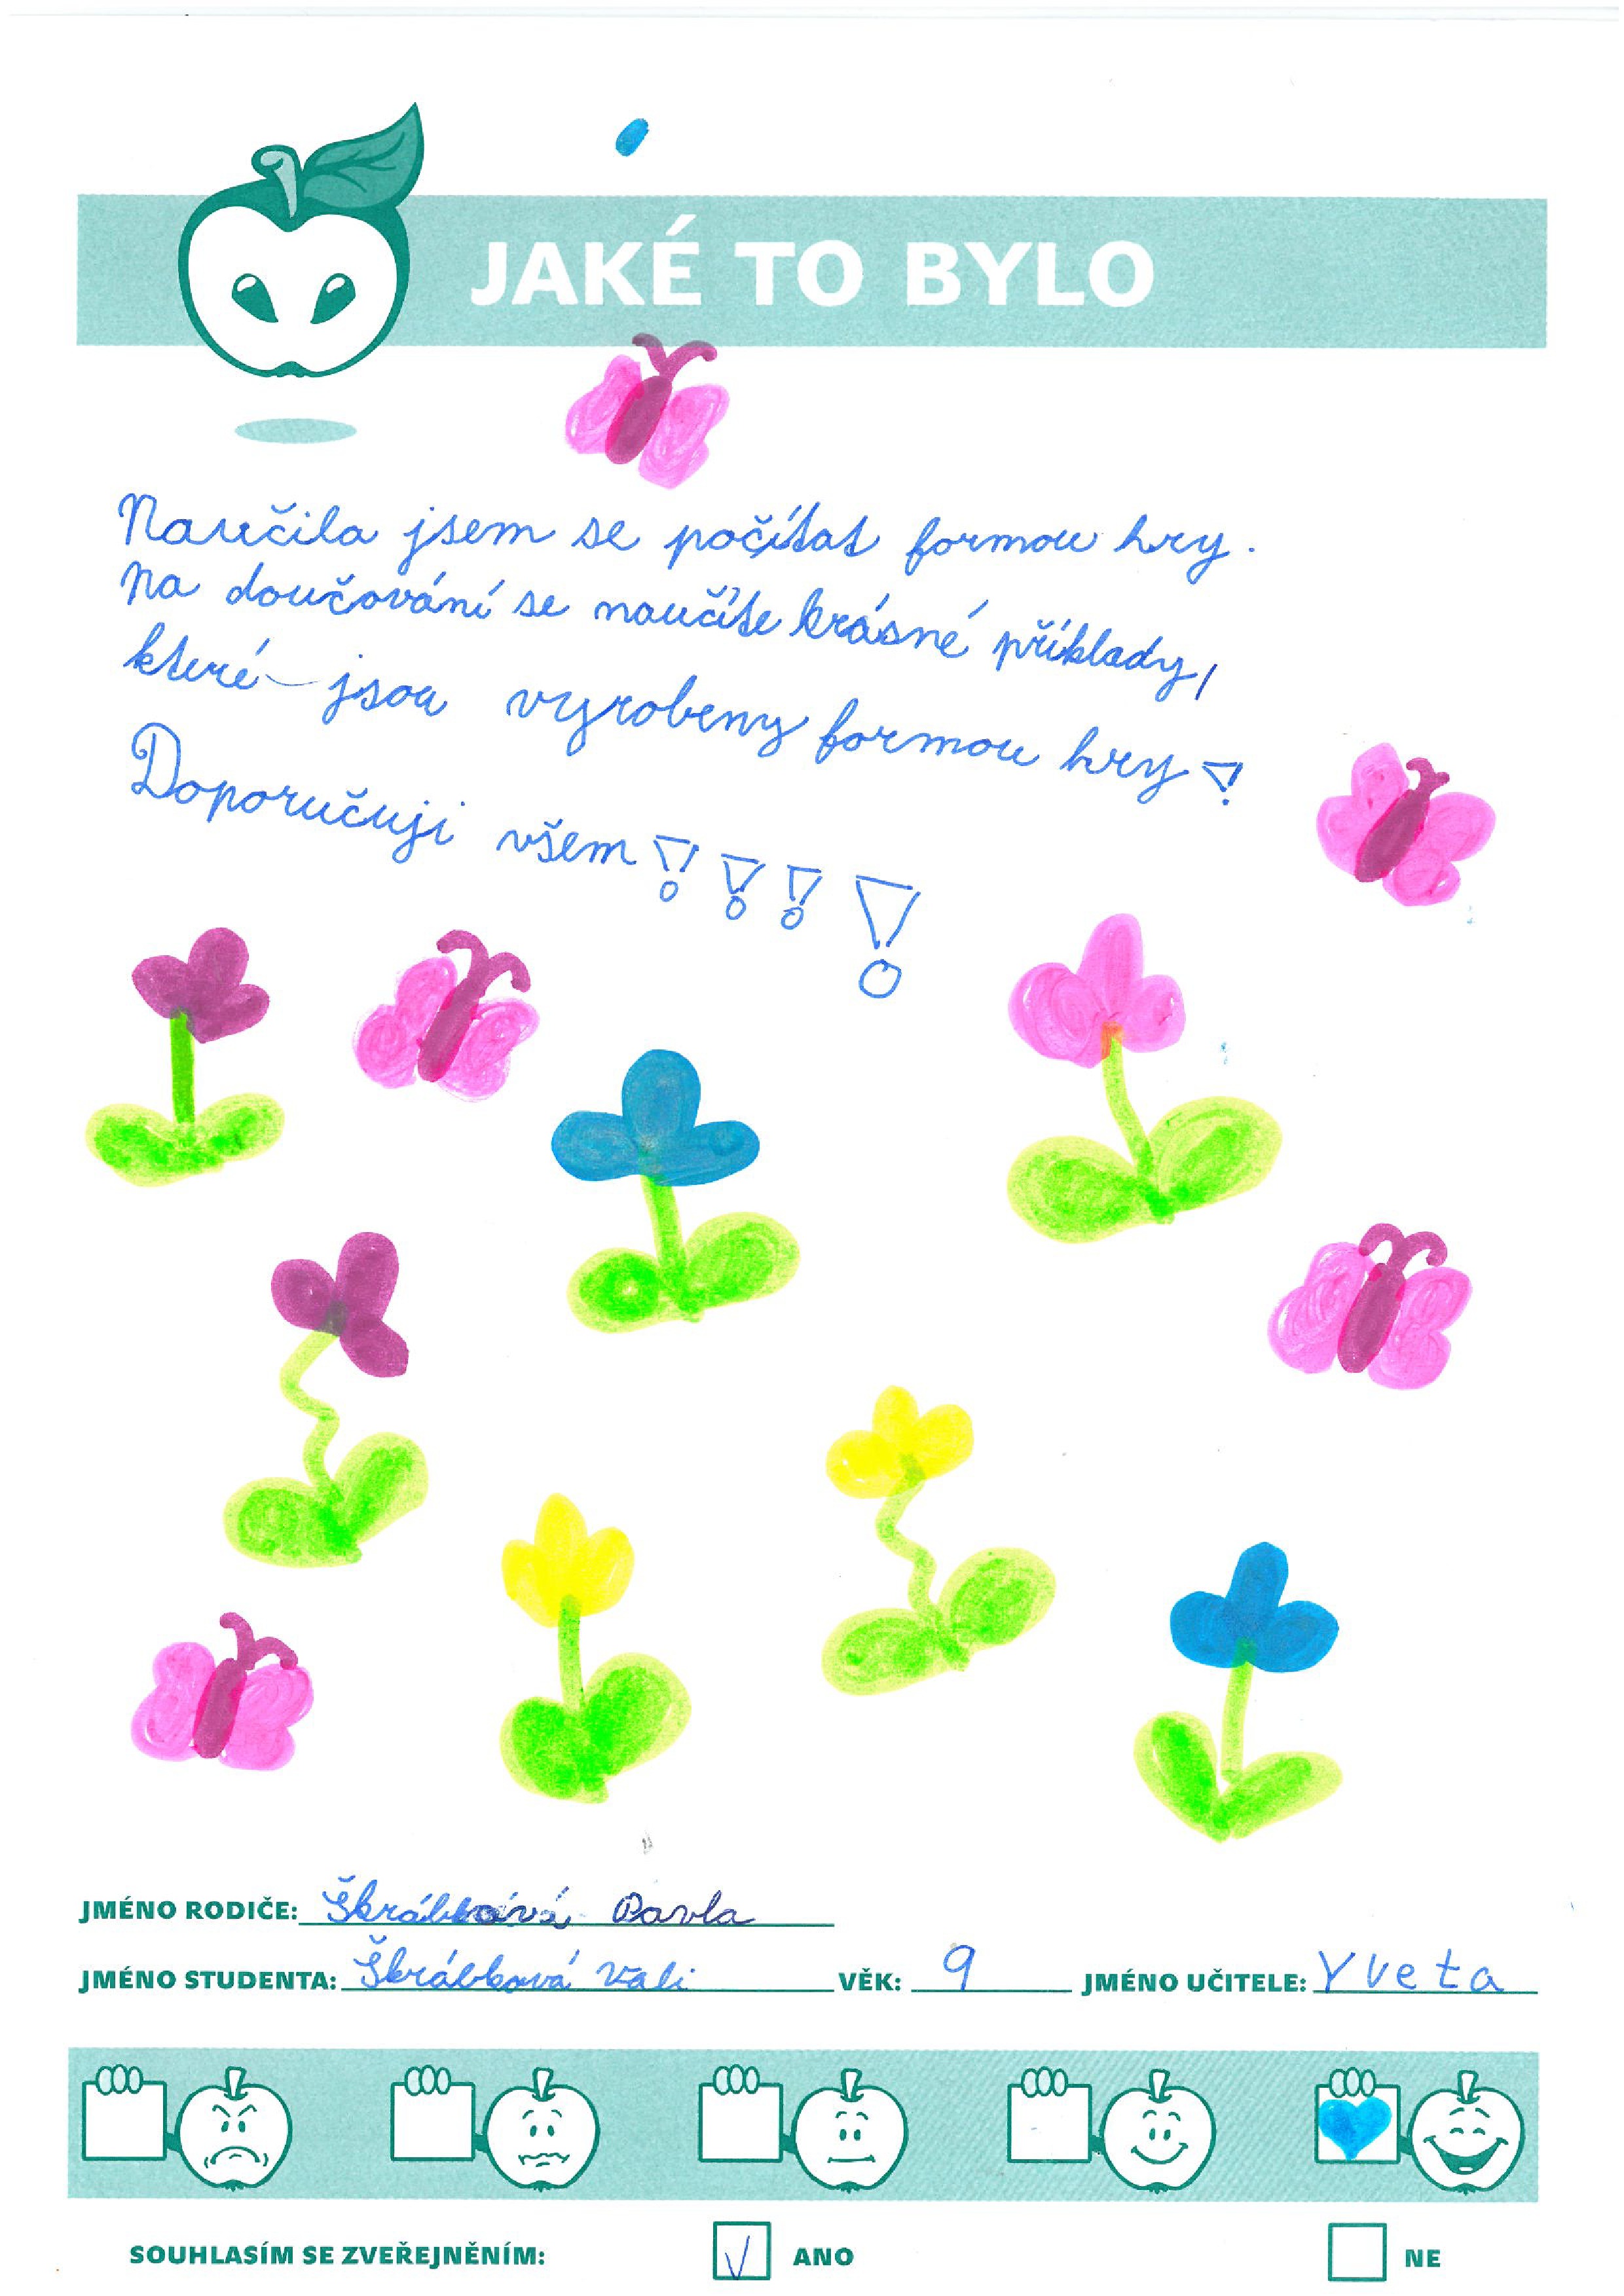 JAKÉ TO BYLO
Naučila jsem se počítat formou hry.
Na doučování se naučíte krásné příklady,
které jsou vyrobeny formou hry!
Doporučuji všem!!!!
JMÉNO RODIČE: Škrábková Pavla
JMÉNO STUDENTA: Škrábková Vali VĚK: 9 JMÉNO UČITELE: Yveta
SOUHLASÍM SE ZVEŘEJNĚNÍM: ANO NE